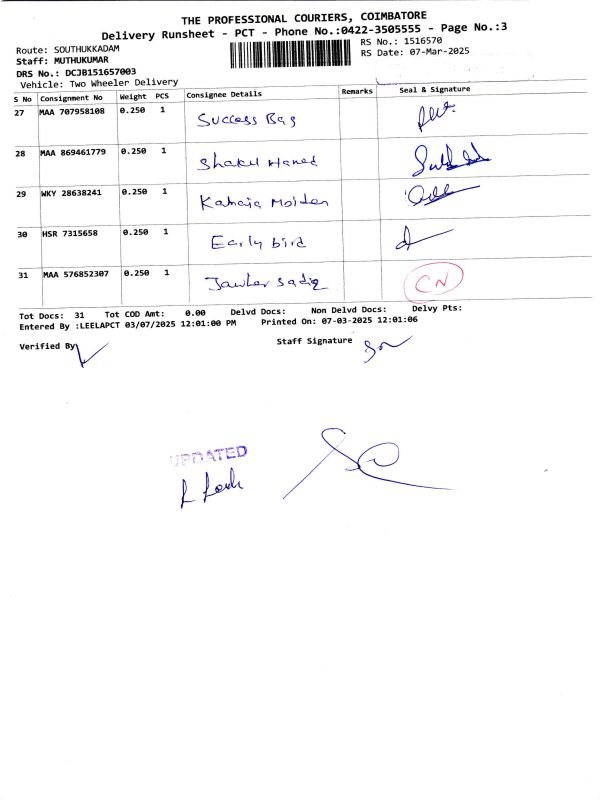 THE PROFESSIONAL COURIERS, COIMBATORE
Delivery Runsheet - PCT - Phone No.:0422-3505555 - Page No.:3
Route: SOUTHUKKADAM
RS No.: 1516570
Staff: MUTHUKUMAR
RS Date: 07-Mar-2025
DRS No.: DCJB151657003
Vehicle: Two Wheeler Delivery
S No Consignment No Weight PCS Consignee Details Remarks Seal & Signature
27 MAA 707958108 0.250 1 Success Bag
28 MAA 869461779 0.250 1 Shakul Hamed
29 WKY 28638241 0.250 1
30 HSR 7315658 0.250 1 Early bird
31 MAA 576852307 0.250 1 Sadiq CN
Tot Docs: 31 Tot COD Amt: 0.00 Delvd Docs: Non Delvd Docs: Delvy Pts:
Entered By :LEELAPCT 03/07/2025 12:01:00 PM Printed On: 07-03-2025 12:01:06
Verified By
Staff Signature
UPDATED